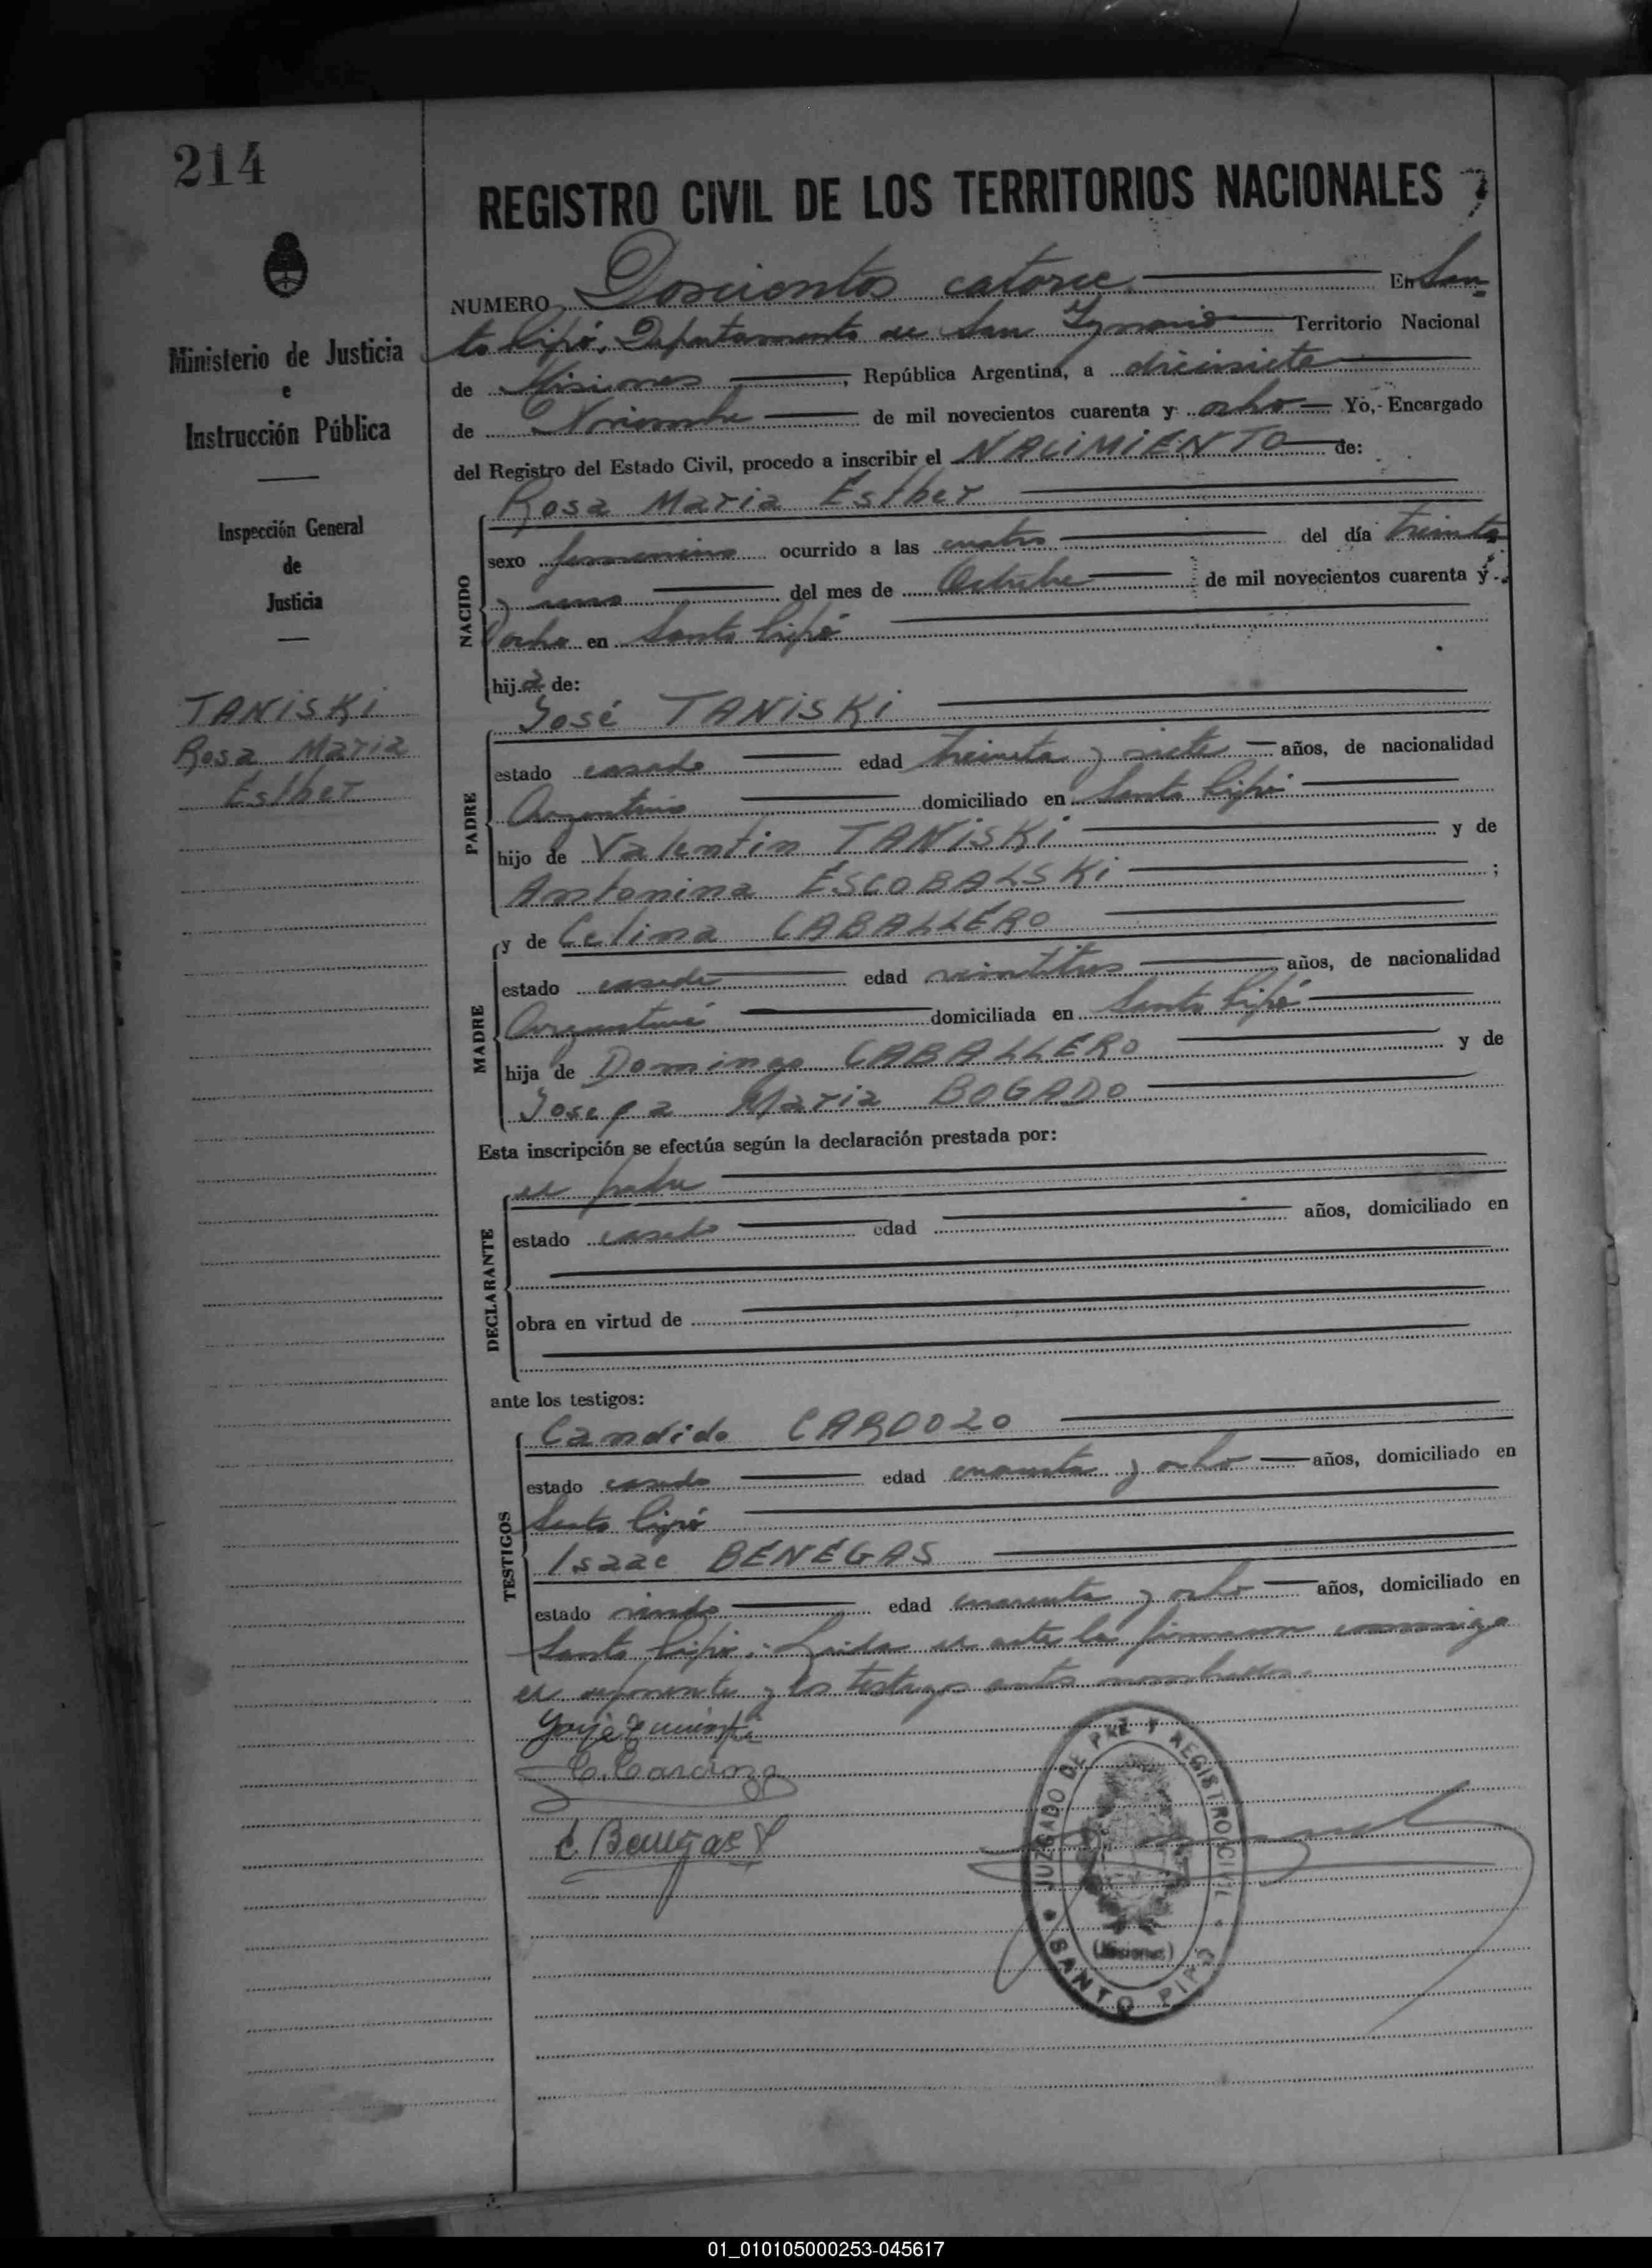 214
REGISTRO CIVIL DE LOS TERRITORIOS NACIONALES
Ministerio de Justicia
e
Instrucción Pública
Inspección General
de
Justicia
TANISKI
Rosa Maria
Esther
NUMERO Doscientos catorce En San-
to Pipó, Departamento de San Ygnacio Territorio Nacional
de Misiones, República Argentina, a diecisiete
de Noviembre de mil novecientos cuarenta y ocho Yo, Encargado
del Registro del Estado Civil, procedo a inscribir el NACIMIENTO de:
Rosa Maria Esther
NACIDO
sexo femenino ocurrido a las cuatro del día treinta
y uno del mes de Octubre de mil novecientos cuarenta y
ocho en Santo Pipó
hija de:
José TANISKI
PADRE
estado casado edad treinta y siete años, de nacionalidad
Argentina domiciliado en Santo Pipó
hijo de Valentin TANISKI y de
Antonina ESCOBALSKI;
y de Celina CABALLERO
MADRE
estado casada edad veintitres años, de nacionalidad
Argentina domiciliada en Santo Pipó
hija de Domingo CABALLERO y de
Josefa Maria BOGADO
Esta inscripción se efectúa según la declaración prestada por:
el padre
DECLARANTE
estado casado edad años, domiciliado en
obra en virtud de
ante los testigos:
Candido CARDOZO
TESTIGOS
estado casado edad cuarenta y ocho años, domiciliado en
Santo Pipó
Isaac BENEGAS
estado viudo edad cuarenta y ocho años, domiciliado en
Santo Pipó. Leida el acta la firmaron conmigo
el exponente y los testigos antes nombrados.
C. Cardozo
Benegas
JUZGADO DE PAZ Y REGISTRO CIVIL
(Misiones)
SANTO PIPÓ
01_010105000253-045617